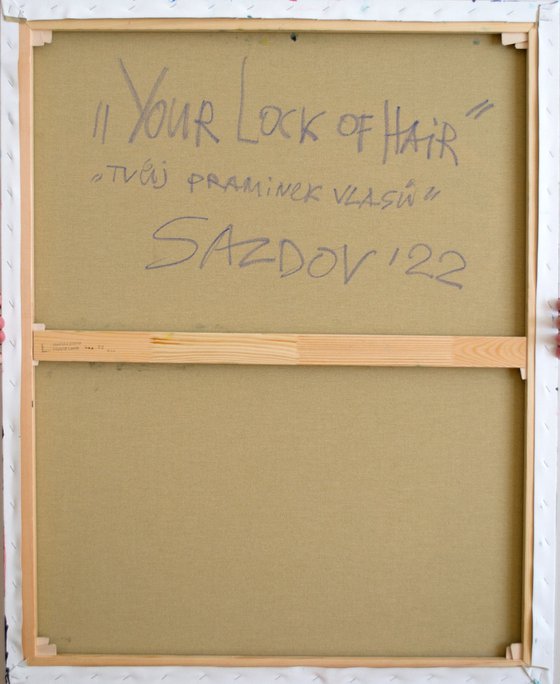 „YOUR LOCK OF HAIR"
„TVŮJ PRAMINEK VLASŮ"
SAZDOV '22